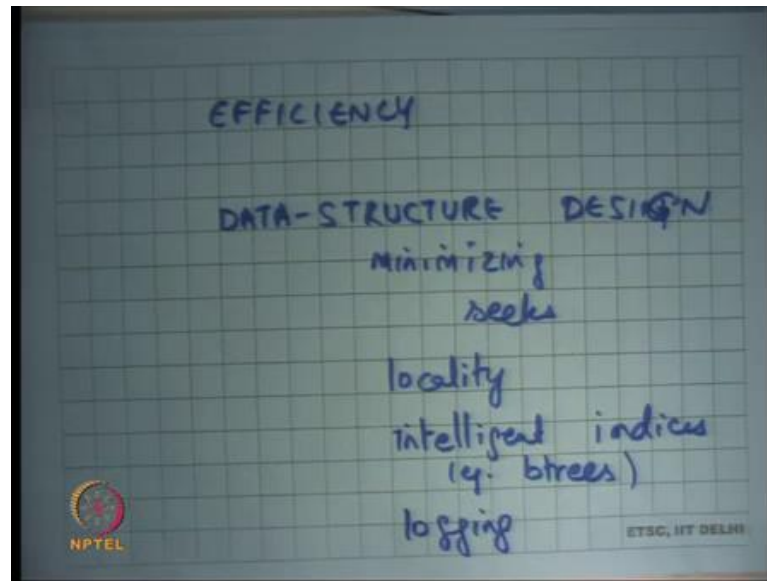 EFFICIENCY
DATA-STRUCTURE DESIGN
minimizing
seeks
locality
intelligent indices
(eg. btrees)
logging
NPTEL
ETSC, IIT DELHI